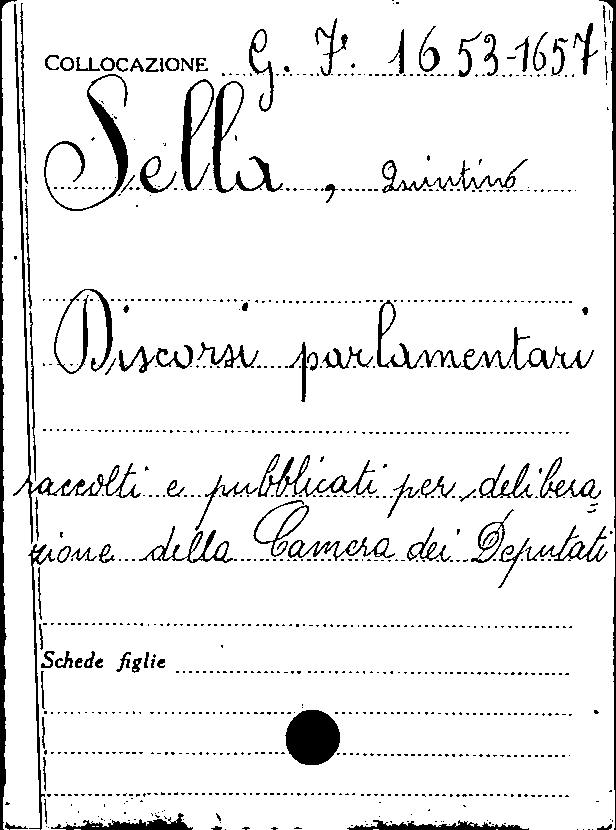 COLLOCAZIONE G. F. 1653-1657
Sella, Quintino
Discorsi parlamentari
raccolti e pubblicati per delibera=
zione della Camera dei Deputati
Schede figlie